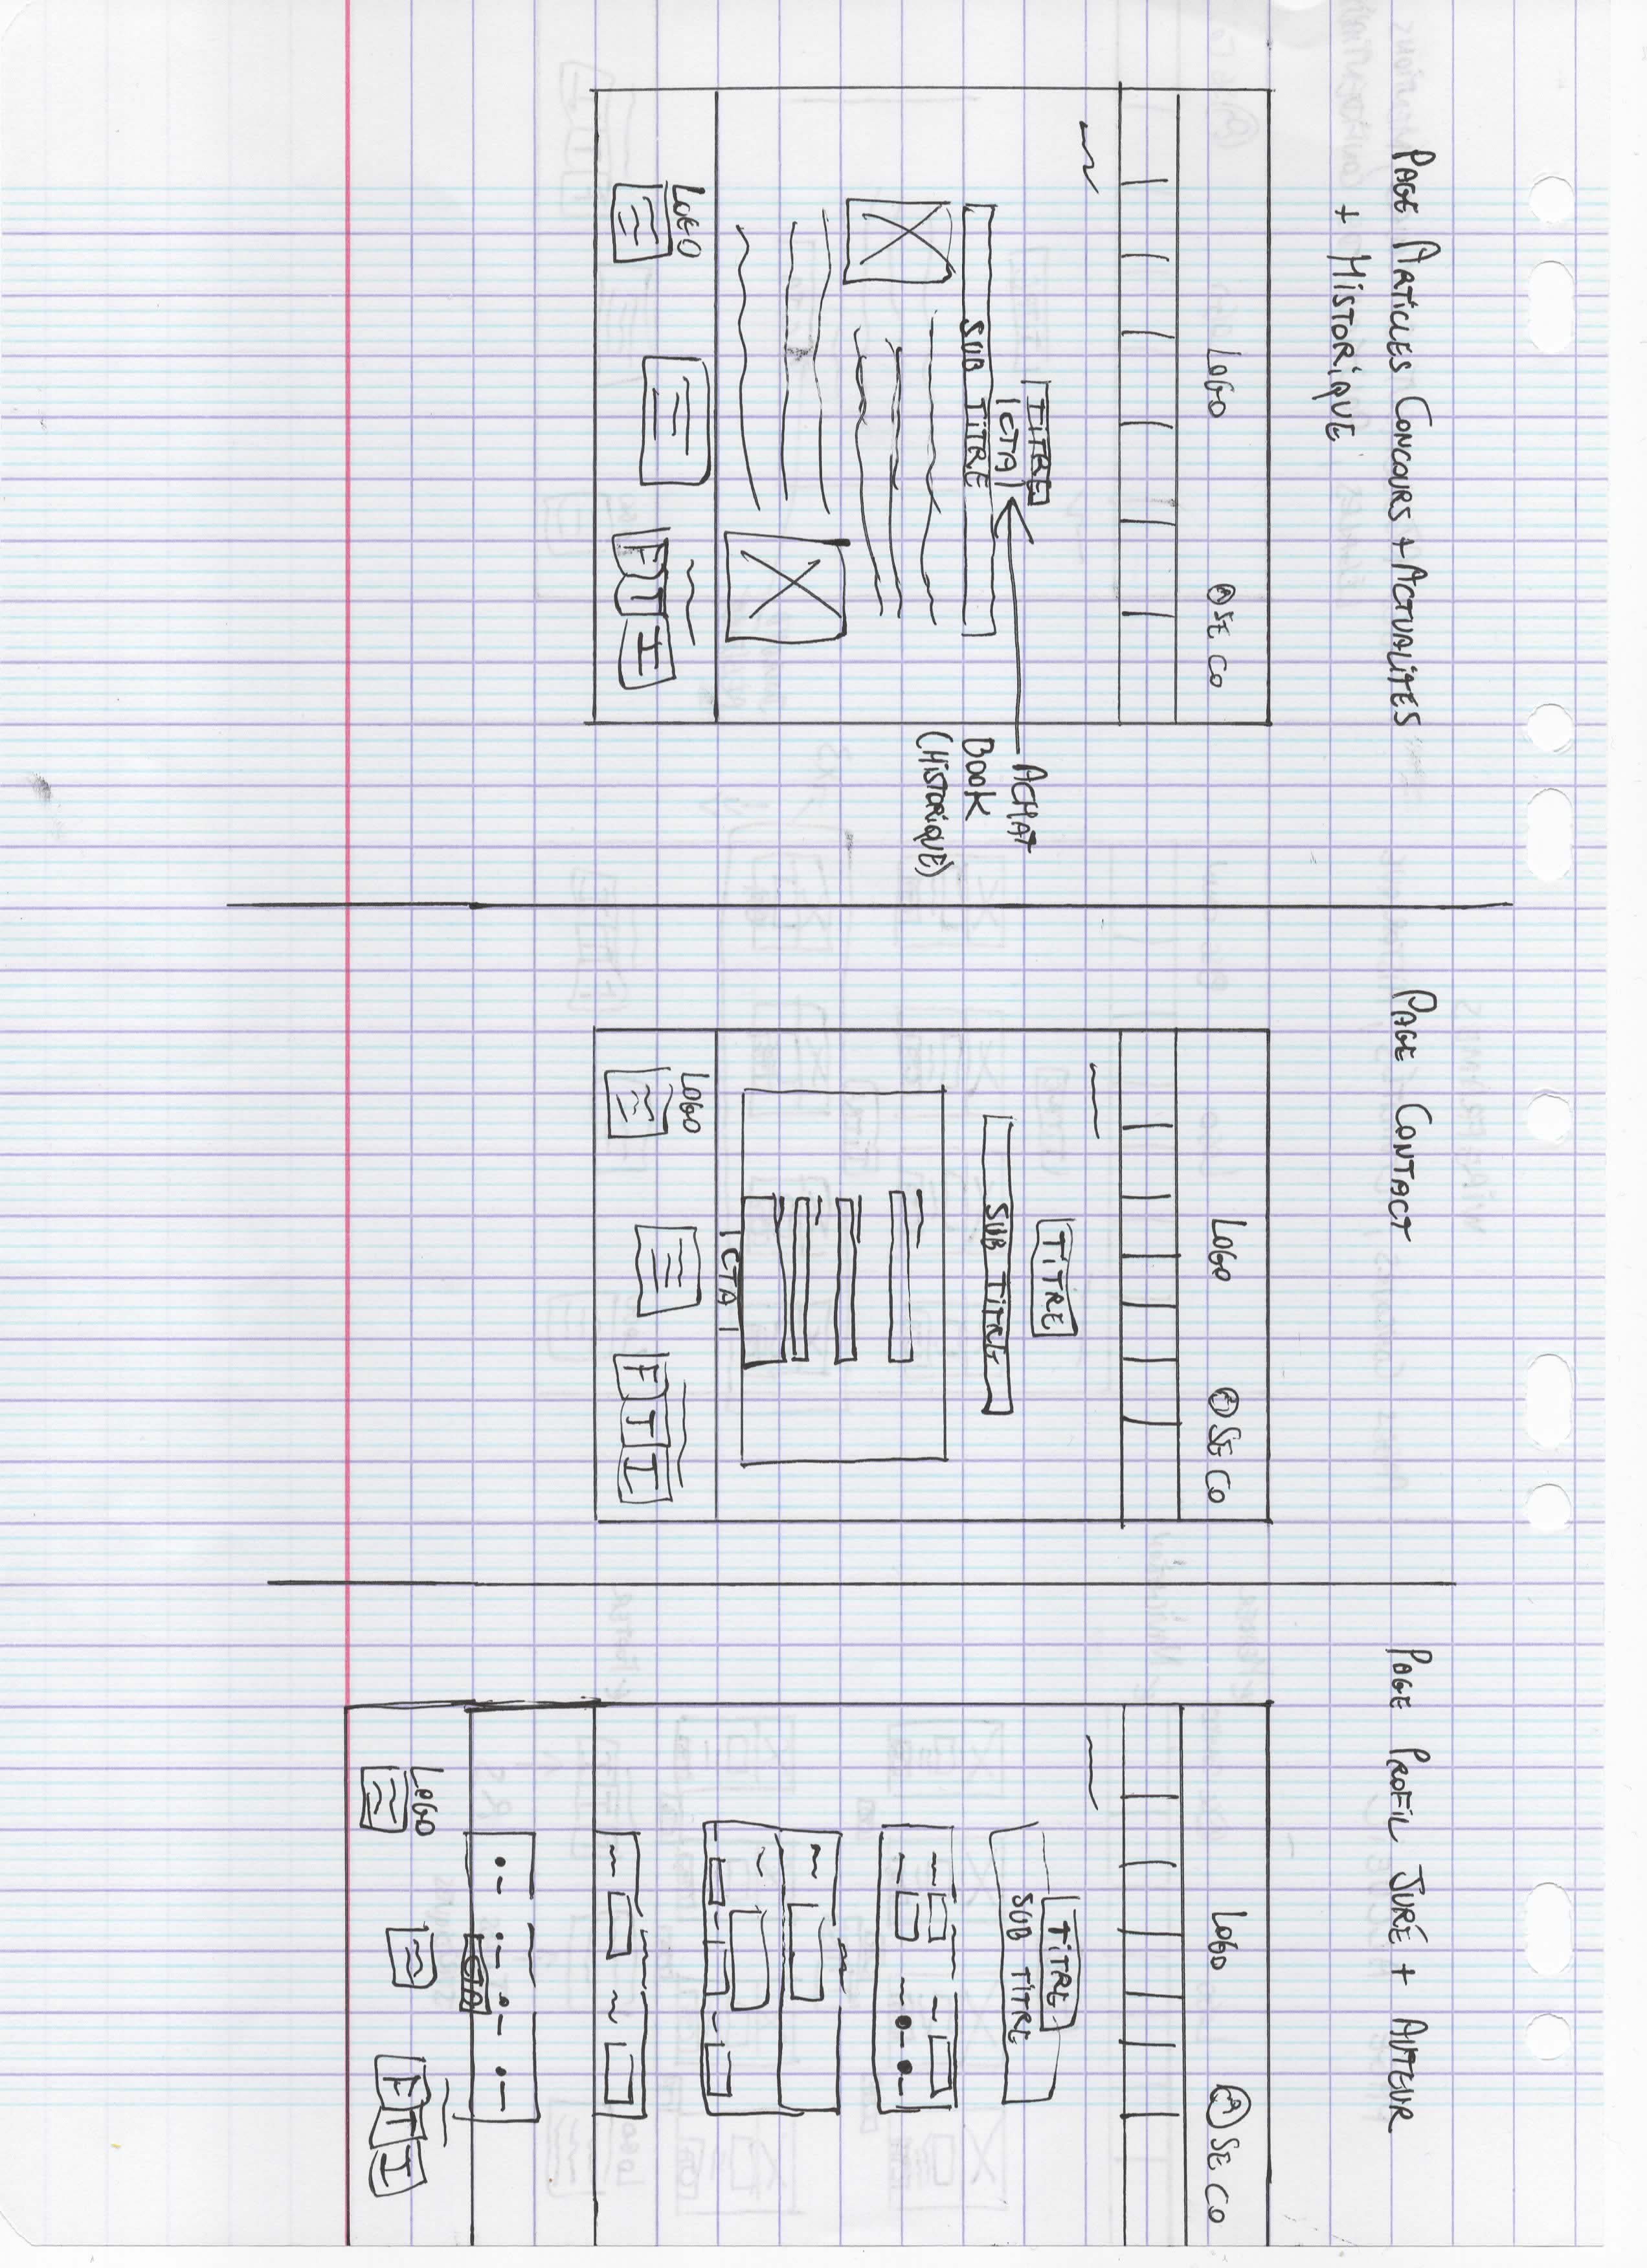 PAGE ARTICLES CONCOURS + ACTUALITÉS
+ HISTORIQUE
LOGO
SE CO
TITRE
CTA
SUB TITRE
ACHAT
BOOK
(HISTORIQUE)
LOGO
F T I
PAGE CONTACT
LOGO
SE CO
TITRE
SUB TITRE
CTA
LOGO
F T I
PAGE PROFIL JURÉ + AUTEUR
LOGO
SE CO
TITRE
SUB TITRE
CTA
LOGO
F T I